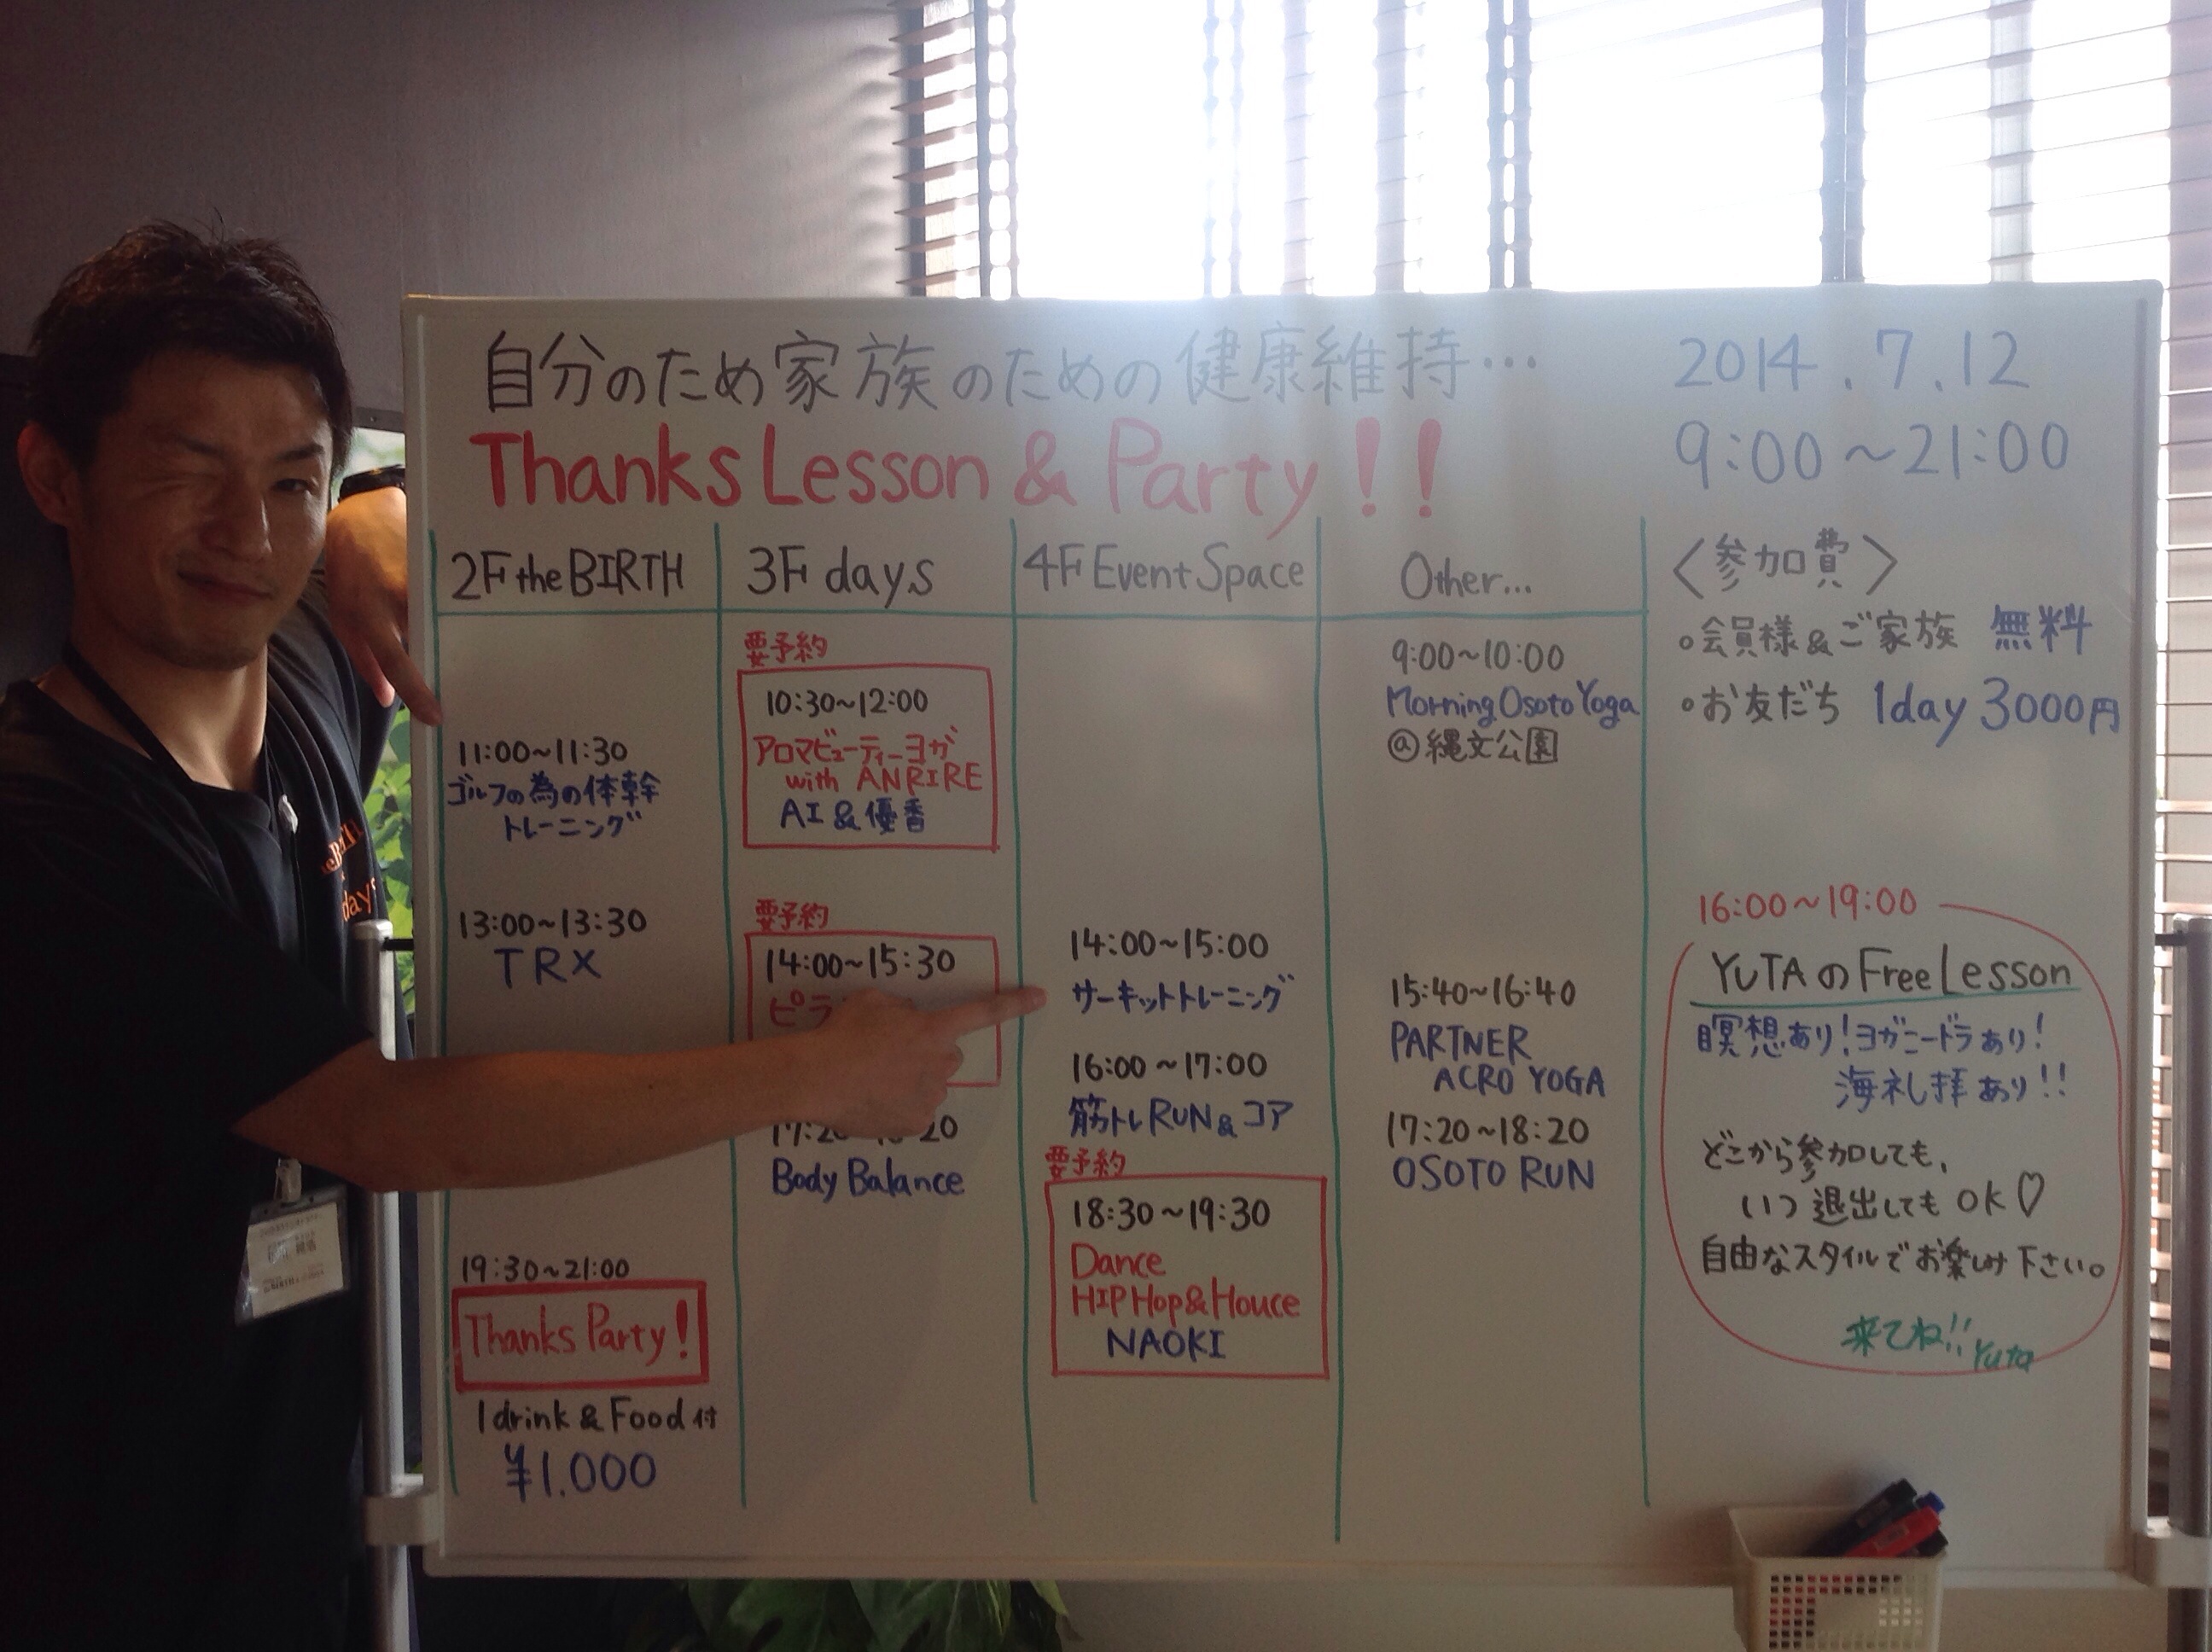 自分のため家族のための健康維持…
Thanks Lesson & Party!!
2014.7.12
9:00~21:00
2F the BIRTH
11:00~11:30
ゴルフの為の体幹
トレーニング
13:00~13:30
TRX
19:30~21:00
Thanks Party!
1drink & Food付
¥1.000
3F days
要予約
10:30~12:00
アロマビューティーヨガ
with ANRIRE
AI & 優香
要予約
14:00~15:30
ピラ
17:2 20
Body Balance
4F Event Space
14:00~15:00
サーキットトレーニング
16:00~17:00
筋トレRUN&コア
要予約
18:30~19:30
Dance
HIP Hop&Houce
NAOKI
Other...
9:00~10:00
Morning Osoto Yoga
@縄文公園
15:40~16:40
PARTNER
ACRO YOGA
17:20~18:20
OSOTO RUN
〈参加費〉
○会員様&ご家族 無料
○お友だち 1day 3000円
16:00~19:00
YUTAのFree Lesson
瞑想あり!ヨガニードラあり!
海礼拝あり!!
どこから参加しても、
いつ退出してもOK♡
自由なスタイルでお楽しみ下さい。
来てね!! Yuta
days